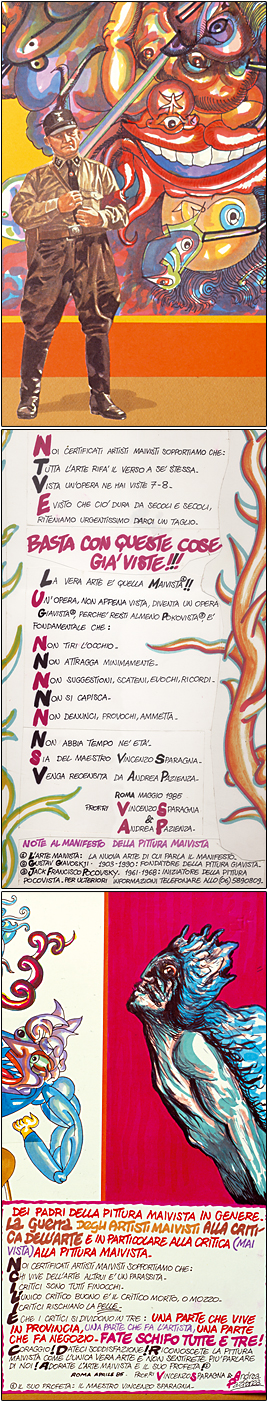 NOI CERTIFICATI ARTISTI MAIVISTI SOPPORTIAMO CHE:
TUTTA L'ARTE RIFA' IL VERSO A SE' STESSA.
VISTA UN'OPERA NE HAI VISTE 7-8.
E VISTO CHE CIO' DURA DA SECOLI E SECOLI,
RITENIAMO URGENTISSIMO DARCI UN TAGLIO.
BASTA CON QUESTE COSE
GIA' VISTE!!!
LA VERA ARTE E' QUELLA MAIVISTA!!
UN'OPERA, NON APPENA VISTA, DIVENTA UN OPERA
GIAVISTA, PERCHE' RESTI ALMENO POKOVISTA E'
FONDAMENTALE CHE:
NON TIRI L'OCCHIO.
NON ATTRAGGA MINIMAMENTE.
NON SUGGESTIONI, SCATENI, EVOCHI, RICORDI.
NON SI CAPISCA.
NON DENUNCI, PROVOCHI, AMMETTA.
NON ABBIA TEMPO NE' ETA'.
SIA DEL MAESTRO VINCENZO SPARAGNA.
VENGA RECENSITA DA ANDREA PAZIENZA.
ROMA MAGGIO 1985
PROFF.RI VINCENZO SPARAGNA
&
ANDREA PAZIENZA.
NOTE AL MANIFESTO DELLA PITTURA MAIVISTA
L'ARTE MAIVISTA: LA NUOVA ARTE DI CUI PARLA IL MANIFESTO.
GUSTAV GIAVOSKIJ - 1903-1930: FONDATORE DELLA PITTURA GIAVISTA.
JACK FRANCISCO POCOVSKY. 1961-1968: INIZIATORE DELLA PITTURA
POCOVISTA. PER ULTERIORI INFORMAZIONI TELEFONARE ALLO (06) 5890809.
DEI PADRI DELLA PITTURA MAIVISTA IN GENERE.
LA GUERRA DEGLI ARTISTI MAIVISTI ALLA CRITI-
CA DELL'ARTE E IN PARTICOLARE ALLA CRITICA (MAI
VISTA) ALLA PITTURA MAIVISTA.
NOI CERTIFICATI ARTISTI MAIVISTI SOPPORTIAMO CHE:
CHI VIVE DELL'ARTE ALTRUI E' UN PARASSITA.
I CRITICI SONO TUTTI FINOCCHI.
L'UNICO CRITICO BUONO E' IL CRITICO MORTO, O MOZZO.
I CRITICI RISCHIANO LA PELLE.
E CHE I CRITICI SI DIVIDONO IN TRE: UNA PARTE CHE VIVE
IN PROVINCIA, UNA PARTE CHE FA L'ARTISTA, UNA PARTE
CHE FA NEGOZIO. FATE SCHIFO TUTTE E TRE!
CORAGGIO! DATECI SODDISFAZIONE! RICONOSCETE LA PITTURA
MAIVISTA COME L'UNICA VERA ARTE E NON SENTIRETE PIU' PARLARE
DI NOI! ADORATE L'ARTE MAIVISTA E IL SUO PROFETA
ROMA APRILE 85. PROFF.RI VINCENZO SPARAGNA & ANDREA PAZIENZA
IL SUO PROFETA: IL MAESTRO VINCENZO SPARAGNA.